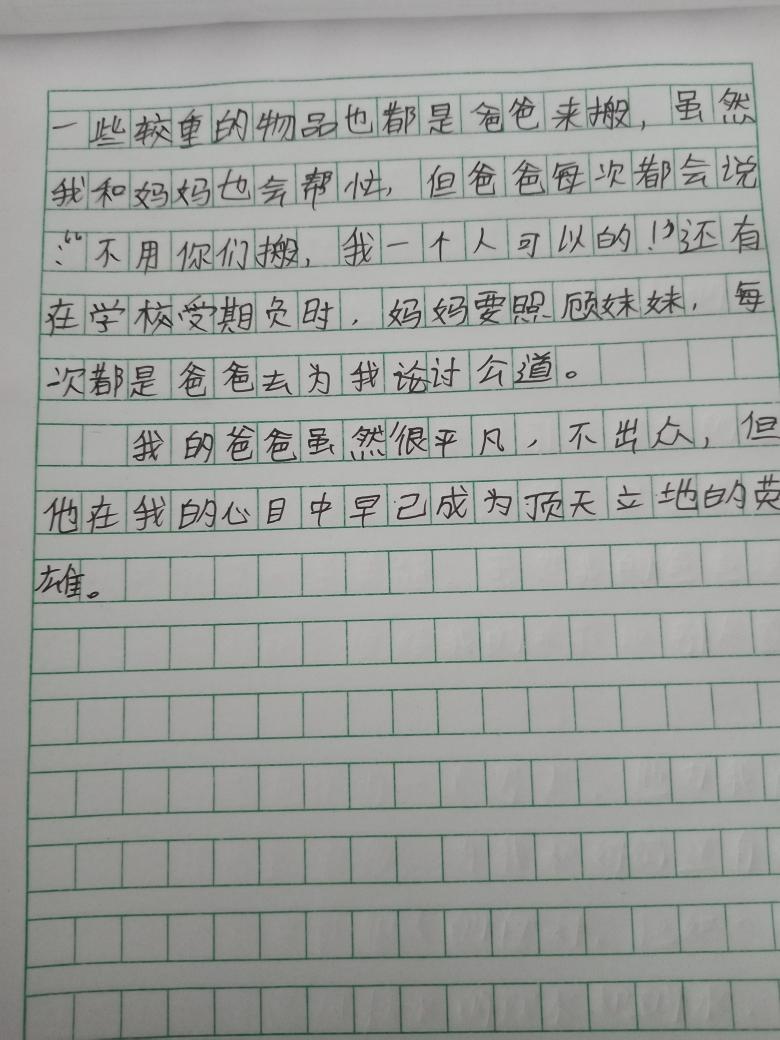 一些较重的物品也都是爸爸来搬，虽然
我和妈妈也会帮忙，但爸爸每次都会说
：“不用你们搬，我一个人可以的！”还有
在学校受期负时，妈妈要照顾妹妹，每
次都是爸爸去为我论讨公道。
我的爸爸虽然很平凡，不出众，但
他在我的心目中早已成为顶天立地的英
雄。